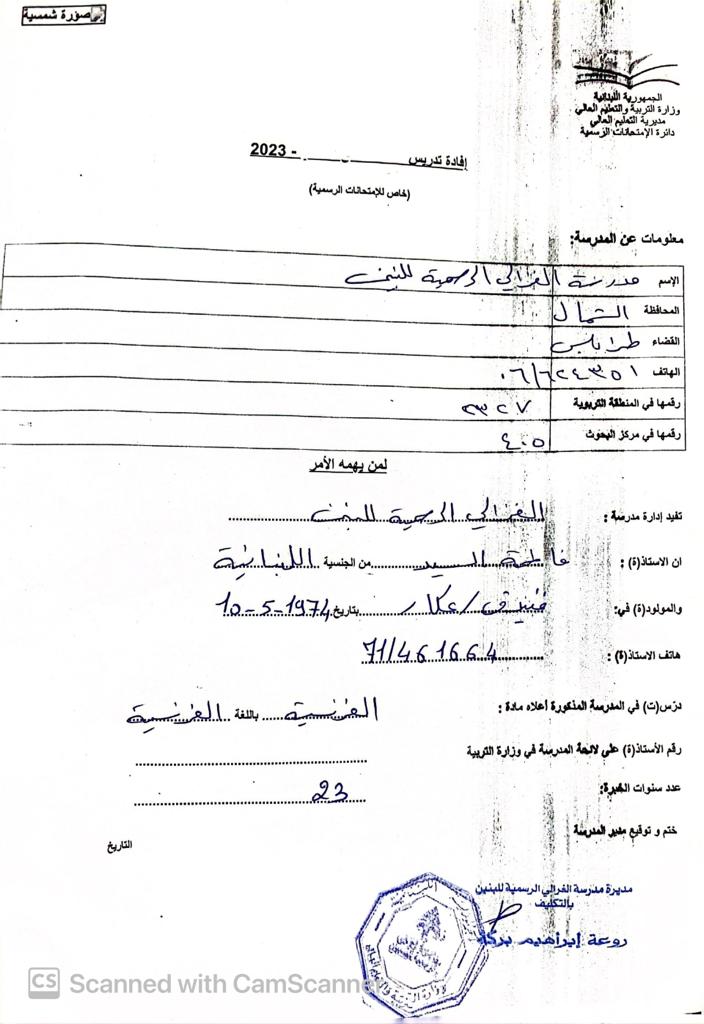 صورة شمسية
الجمهورية اللبنانية
وزارة التربية والتعليم العالي
مديرية التعليم العالي
دائرة الإمتحانات الرسمية
إفادة تدريس - 2023
(خاص للإمتحانات الرسمية)
معلومات عن المدرسة:
الإسم مدرسة الغزالي الرسمية للبنين
المحافظة الشمال
القضاء طرابلس
الهاتف ٠٦/٦٢٤٣٥١
رقمها في المنطقة التربوية ٢٣٢٧
رقمها في مركز البحوث ٤٠٥
لمن يهمه الأمر
تفيد إدارة مدرسة : الغزالي الرسمية للبنين
ان الاستاذ(ة) : فاطمة السيد من الجنسية اللبنانية
والمولود(ة) في: فنيدق/عكار بتاريخ 10-5-1974
هاتف الاستاذ(ة) : 71/461664
درّس(ت) في المدرسة المذكورة أعلاه مادة : الفرنسية باللغة الفرنسية
رقم الأستاذ(ة) على لائحة المدرسة في وزارة التربية
عدد سنوات الخبرة: 23
ختم و توقيع مدير المدرسة
التاريخ
مديرة مدرسة الغزالي الرسمية للبنين
بالتكليف
روعة إبراهيم بركة
CS Scanned with CamScanner